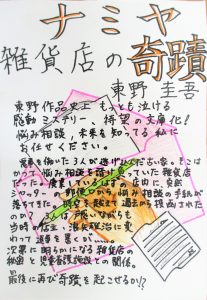 ナミヤ
雑貨店の奇蹟
東野 圭吾
東野作品史上 もっとも泣ける
感動ミステリー、待望の文庫化!
悩み相談、未来を知ってる私に
お任せください。
悪事を働いた3人が逃げ込んだ古い家。そこは
かつて悩み相談を請け負っていた雑貨店
だった。廃業しているはずの店内に、突然
シャッターの郵便口から悩み相談の手紙が
落ちてきた。時空を超えて過去から投函された
のか?3人は戸惑いながらも
当時の店主・浪矢雄治に変
わって返事を書くが……。
次第に明らかになる雑貨店の
秘密と児童養護施設との関係。
最後に再び奇蹟を起こせるか!?